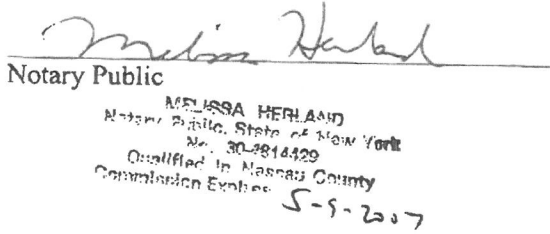 Melissa Herland
Notary Public
MELISSA HERLAND
Notary Public, State of New York
No. 30-4814429
Qualified in Nassau County
Commission Expires 5-9-2007